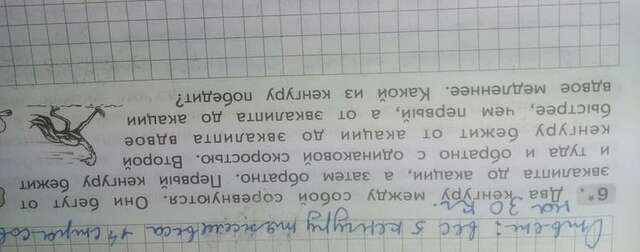 Ответ: вес 5 кенгуру тяжелее веса 4 страусов
на 30 кг.
6*. Два кенгуру между собой соревнуются. Они бегут от
эвкалипта до акации, а затем обратно. Первый кенгуру бежит
и туда и обратно с одинаковой скоростью. Второй
кенгуру бежит от акации до эвкалипта вдвое
быстрее, чем первый, а от эвкалипта до акации
вдвое медленнее. Какой из кенгуру победит?